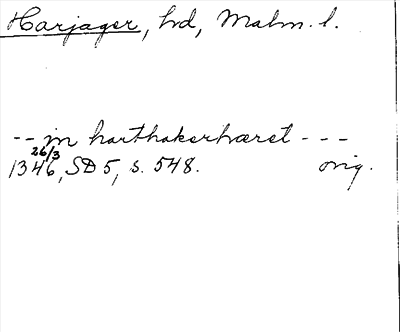 Harjager, hd, Malm. l.
-- in harthakerhæret ---
26/3
1346, SD 5, s. 548. orig.